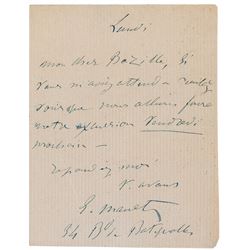 Lundi
mon cher Bazille, Si
vous m'aviez attendu
vous que nous allions faire
notre excursion Vendredi
prochain —
répondez moi
E. Manet
34 Bd des Batignolles